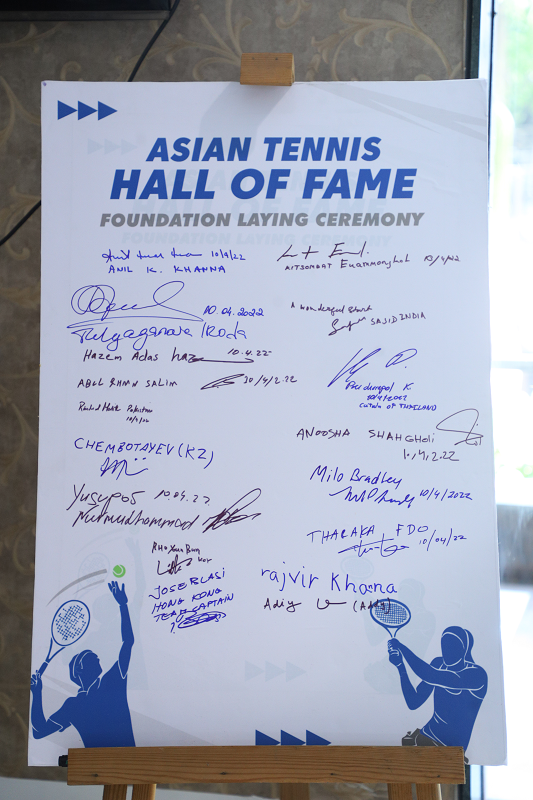 ASIAN TENNIS
HALL OF FAME
FOUNDATION LAYING CEREMONY
10/4/22
ANIL K. KHANNA
KITSOMBAT Euammongkol 10/4/22
10.04.2022
Tulyaganova Iroda
A wonderful start
SAJID INDIA
Hazem Adas 10.4.22
ABDL RHMN SALIM 10/4/2.22
K
10/4/2022
OF THAILAND
Rashid Malik Pakistan
10/4/22
ANOOSHA SHAHGholi
10,4,2.22
CHEMBOTAYEV (KZ)
Milo Bradley
10/4/2022
Yusupos 10.04.22
Nurmudhammad
THARAKA FDO
10/04/22
Rho Kun Bum
Kor
JOSE RLASI
HONG KONG
TEAM CAPTAIN
rajvir Khanna